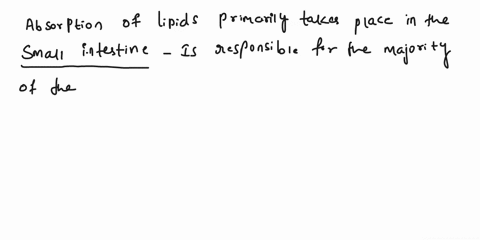 Absorption of lipids primarily takes place in the
Small intestine - Is responsible for the majority
of the